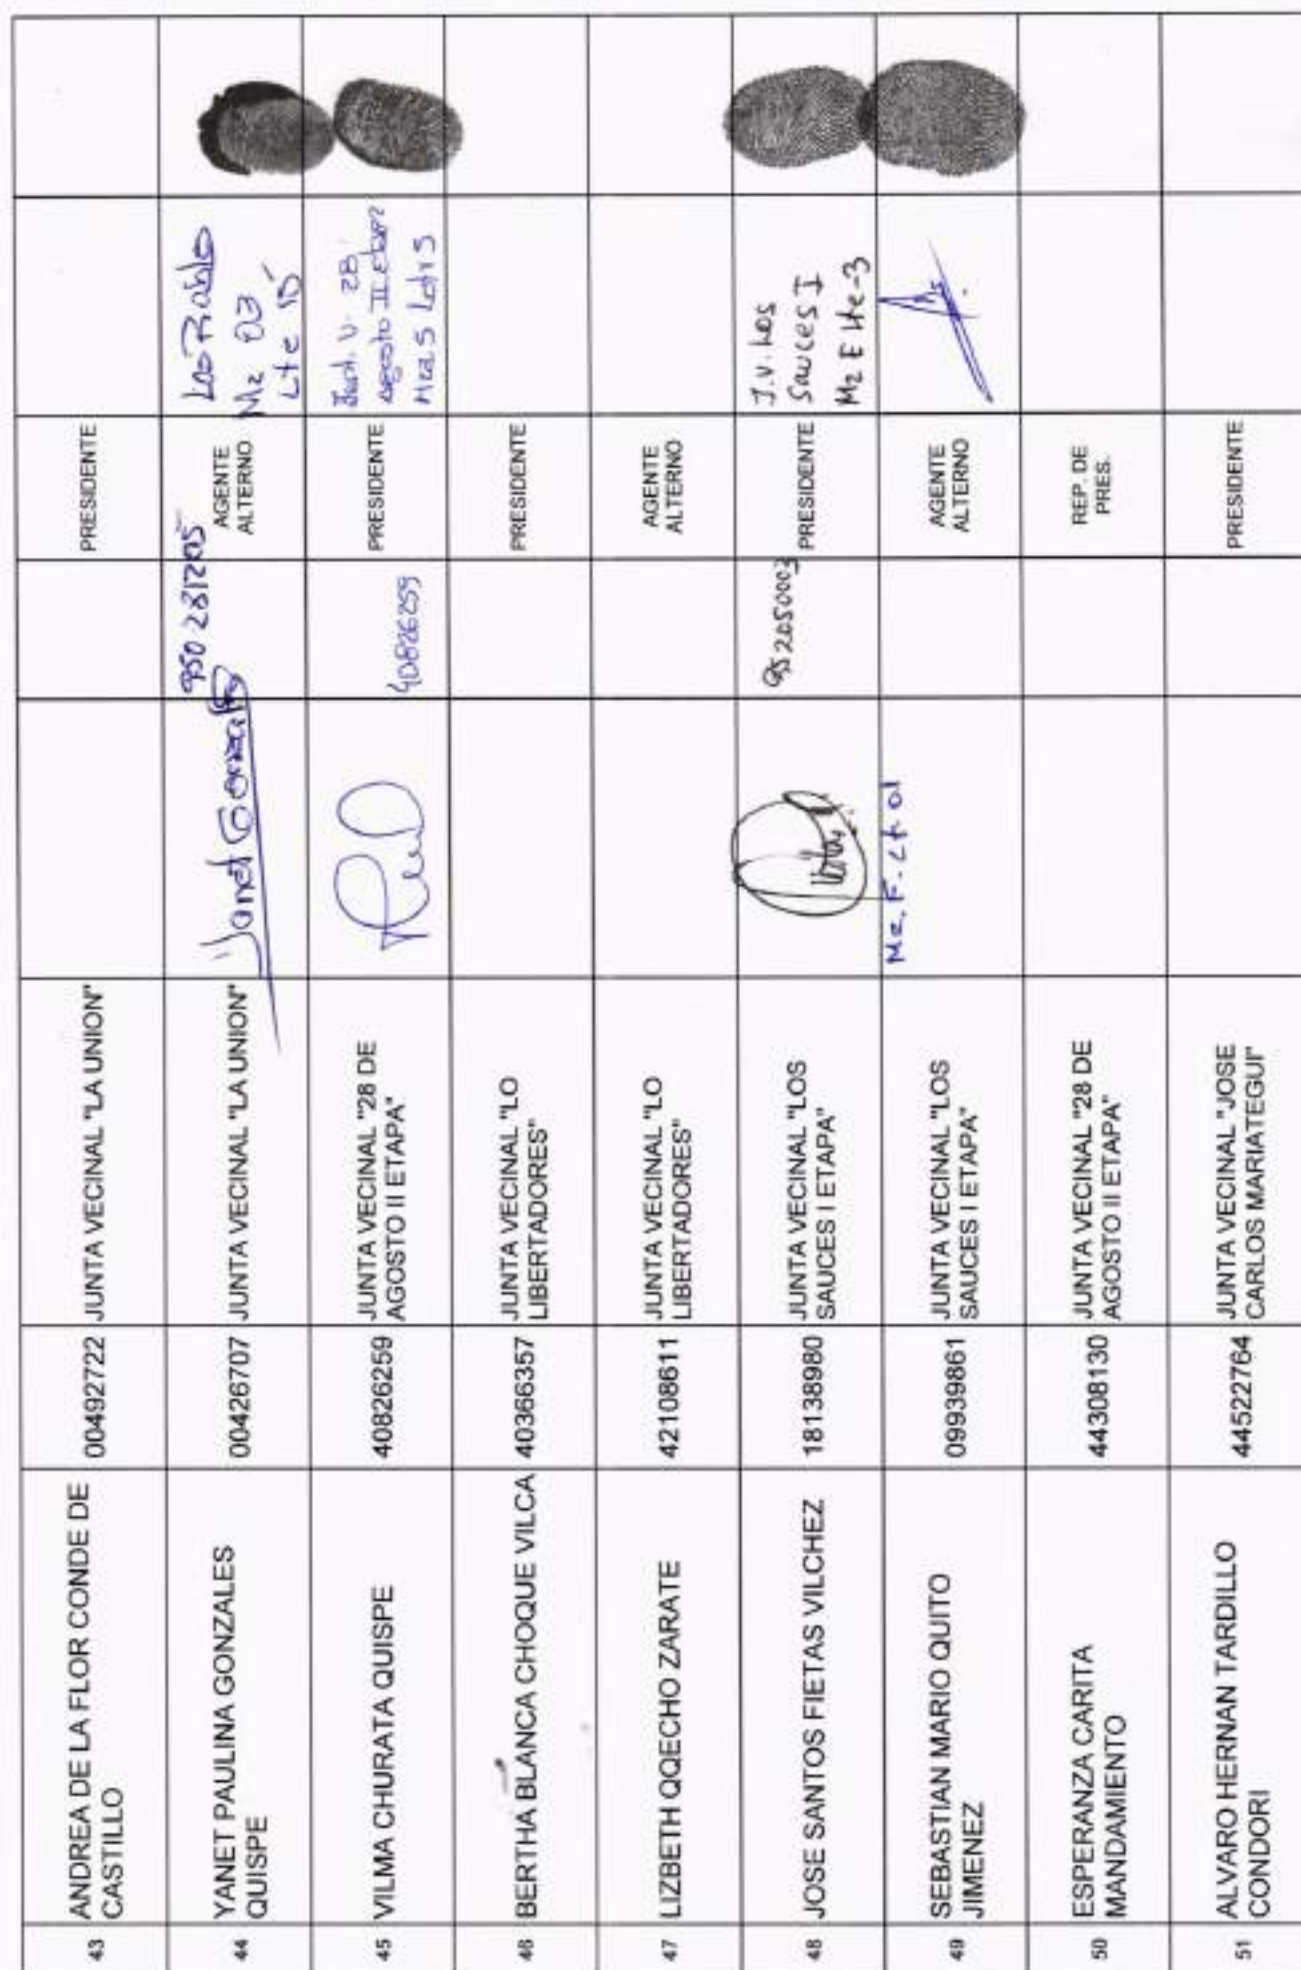 43
ANDREA DE LA FLOR CONDE DE
CASTILLO
00492722
JUNTA VECINAL "LA UNION"
PRESIDENTE
44
YANET PAULINA GONZALES
QUISPE
00426707
JUNTA VECINAL "LA UNION"
Yanet Gonzales
950 281205
AGENTE
ALTERNO
Mz 03
Lte 15
45
VILMA CHURATA QUISPE
40826259
JUNTA VECINAL "28 DE
AGOSTO II ETAPA"
40826259
PRESIDENTE
Junt. V. 28
agosto II Etapa
Mza 5 Lote 5
46
BERTHA BLANCA CHOQUE VILCA
40366357
JUNTA VECINAL "LO
LIBERTADORES"
PRESIDENTE
47
LIZBETH QQECHO ZARATE
42108611
JUNTA VECINAL "LO
LIBERTADORES"
AGENTE
ALTERNO
48
JOSE SANTOS FIETAS VILCHEZ
18138980
JUNTA VECINAL "LOS
SAUCES I ETAPA"
952050003
PRESIDENTE
J.V. LOS
Sauces I
Mz E Lte-3
49
SEBASTIAN MARIO QUITO
JIMENEZ
09939861
JUNTA VECINAL "LOS
SAUCES I ETAPA"
Mz. F. Lt 01
AGENTE
ALTERNO
50
ESPERANZA CARITA
MANDAMIENTO
44308130
JUNTA VECINAL "28 DE
AGOSTO II ETAPA"
REP. DE
PRES.
51
ALVARO HERNAN TARDILLO
CONDORI
44522764
JUNTA VECINAL "JOSE
CARLOS MARIATEGUI"
PRESIDENTE